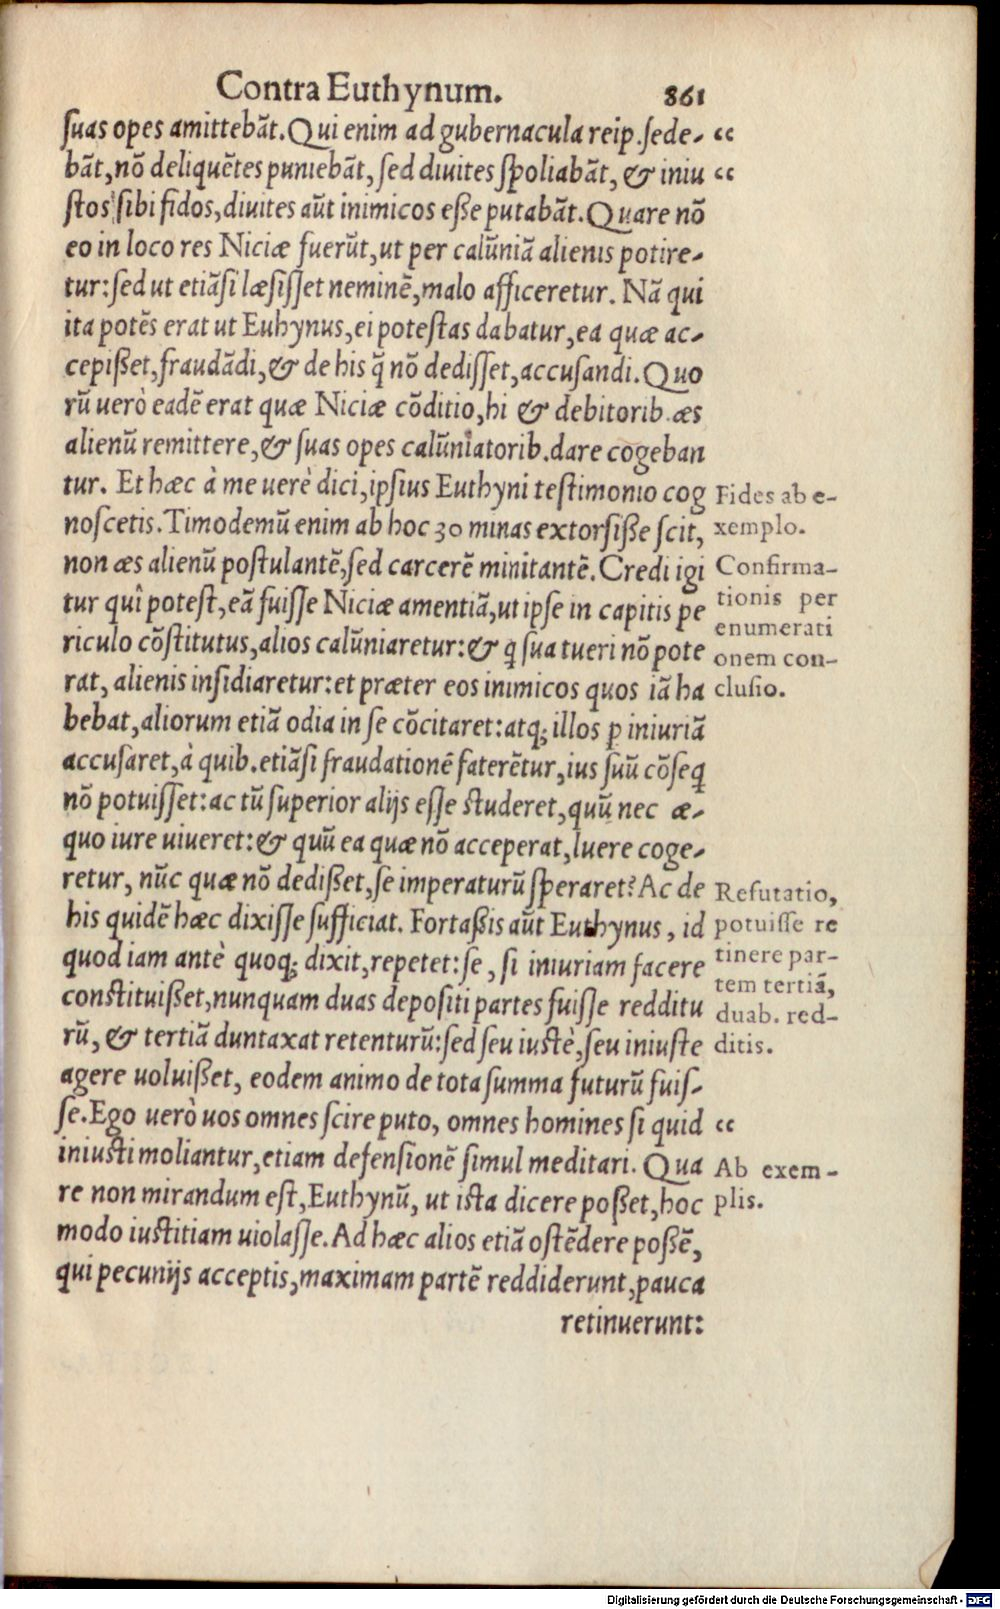 Contra Euthynum. 861
suas opes amittebāt. Qui enim ad gubernacula reip. sede- “
bāt, nō deliquētes puniebāt, sed divites spoliabāt, & iniu “
stos sibi fidos, divites aūt inimicos esse putabāt. Quare nō
eo in loco res Niciæ fuerūt, ut per calūniā alienis potire-
tur: sed ut etiāsi læsisset neminē, malo afficeretur. Nā qui
ita potēs erat ut Euhynus, ei potestas dabatur, ea quæ ac-
cepisset, fraudādi, & de his q̄ nō dedisset, accusandi. Quo
rū uerò eadē erat quæ Niciæ cōditio, hi & debitorib. æs
alienū remittere, & suas opes calūniatorib. dare cogeban
tur. Et hæc à me uerè dici, ipsius Euthyni testimonio cog
noscetis. Timodemū enim ab hoc 30 minas extorsisse scit,
non æs alienū postulantē, sed carcerē minitantē. Credi igi
tur quî potest, eā fuisse Niciæ amentiā, ut ipse in capitis pe
riculo cōstitutus, alios calūniaretur: & q sua tueri nō pote
rat, alienis insidiaretur: et præter eos inimicos quos iā ha
bebat, aliorum etiā odia in se cōcitaret: atq; illos p iniuriā
accusaret, à quib. etiāsi fraudationē faterētur, ius suū cōseq
nō potuisset: ac tū superior alijs esse studeret, quū nec æ-
quo iure uiueret: & quū ea quæ nō acceperat, luere coge-
retur, nūc quæ nō dedisset, se imperaturū speraret? Ac de
his quidē hæc dixisse sufficiat. Fortassis aūt Euthynus, id
quod iam antè quoq; dixit, repetet: se, si iniuriam facere
constituisset, nunquam duas depositi partes fuisse redditu
rū, & tertiā duntaxat retenturū: sed seu iustè, seu iniuste
agere uoluisset, eodem animo de tota summa futurū fuis-
se. Ego uerò uos omnes scire puto, omnes homines si quid “
iniusti moliantur, etiam defensionē simul meditari. Qua
re non mirandum est, Euthynū, ut ista dicere posset, hoc
modo iustitiam uiolasse. Ad hæc alios etiā ostēdere possē,
qui pecunijs acceptis, maximam partē reddiderunt, pauca
retinuerunt:
Fides ab e-
xemplo.
Confirma-
tionis per
enumerati
onem con-
clusio.
Refutatio,
potuisse re
tinere par-
tem tertiā,
duab. red-
ditis.
Ab exem-
plis.
Digitalisierung gefördert durch die Deutsche Forschungsgemeinschaft - DFG